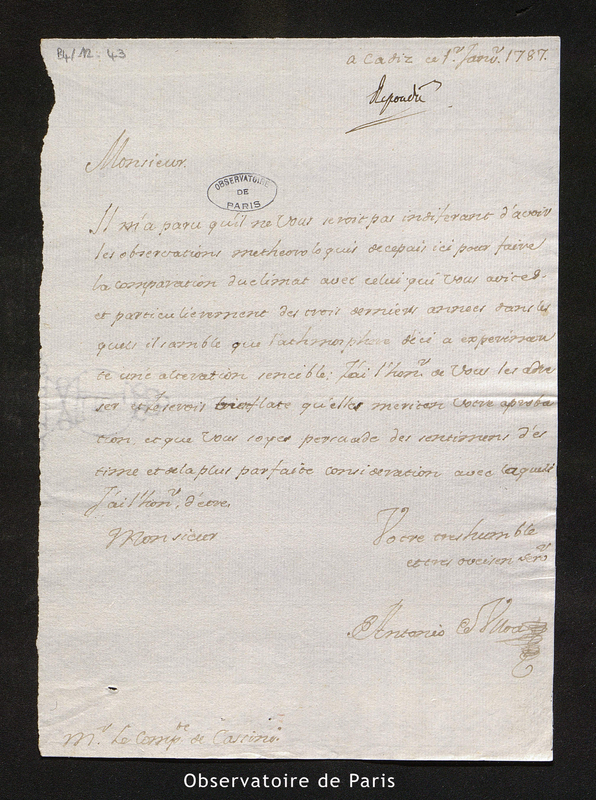 P4/12. 43
a Cadiz ce 1.r Janv.r 1787.
Repondu
Monsieur.
OBSERVATOIRE
DE
PARIS
Il m'a paru qu'il ne Vous seroit pas indiferant d'avoir
les observations metheorologuis de cepais ici pour faire
la comparation du climat avec celui qui Vous
et particulierement des trois derniers annees dans les
quels il samble que l'athmosphere d'ici a experimen
te une alteration sencible; J'ai l'hon.r de Vous les adre
ser et serois flate qu'elles meriten Votre aproba
tion et que Vous soyes persuade des sentimens d'es
time et de la plus parfaite consideration avec laquele
J'ai l'hon.r d'etre,
Monsieur
Votre tres humble
et tres
Antonio de Ulloa
M.r Le Comp.te de Cassini.
Observatoire de Paris